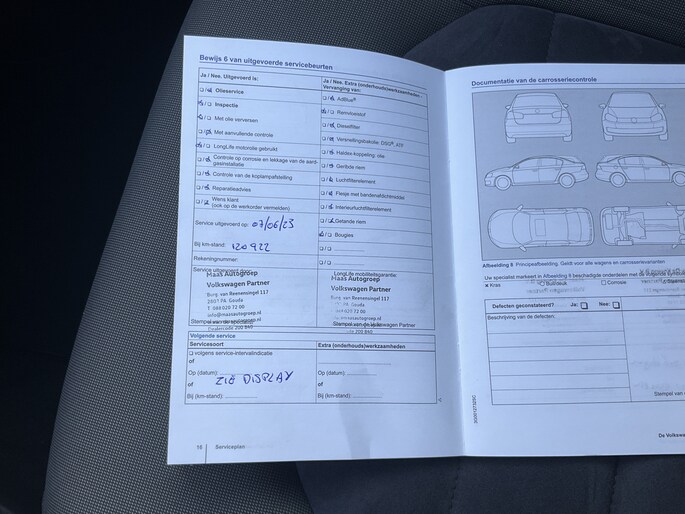 Bewijs 6 van uitgevoerde servicebeurten
Ja / Nee. Uitgevoerd is:
Olieservice
Inspectie
Met olie verversen
Met aanvullende controle
LongLife motorolie gebruikt
Controle op corrosie en lekkage van de aard-
gasinstallatie
Controle van de koplampafstelling
Reparatieadvies
Wens klant
(ook op de werkorder vermelden)
Service uitgevoerd op: 07/06/23
Bij km-stand: 120922
Rekeningnummer:
Service uitgevoerd door:
Maas Autogroep
Volkswagen Partner
Burg. van Reenensingel 117
2803 PA Gouda
info@maasautogroep.nl
Ja / Nee. Extra (onderhouds)werkzaamheden:
Vervanging van:
AdBlue®
Remvloeistof
Dieselfilter
Versnellingsbakolie: DSG®,
Haldex-koppeling: olie
Geribde riem
Luchtfilterelement
Flesje met bandenafdichtmiddel
Interieurluchtfilterelement
Getande riem
Bougies
LongLife mobiliteitsgarantie:
Maas Autogroep
Volkswagen Partner
Burg. van Reenensingel 117
Volgende service
Servicesoort
Extra (onderhouds)werkzaamheden
volgens service-intervalindicatie
of
Op (datum):
of
ZIE DISPLAY
Bij (km-stand):
Op (datum):
Bij (km-stand):
16
Serviceplan
Documentatie van de carrosseriecontrole
Afbeelding 8 Principeafbeelding. Geldt voor alle wagens en carrosserievarianten
Uw specialist markeert in Afbeelding 8 beschadigde onderdelen met de volgende
Kras
Buil/deuk
Corrosie
Defecten geconstateerd? Ja: Nee:
Beschrijving van de defecten:
Stempel van
De Volksw